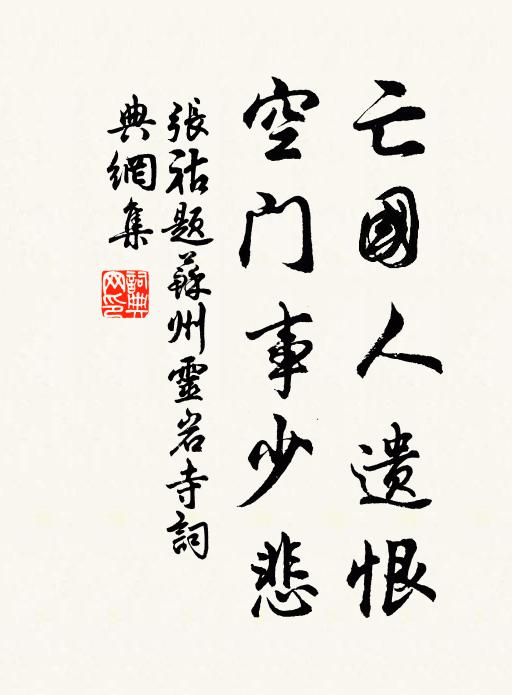 亡國人遺恨
空門事少悲
張祜題蘇州靈岩寺詞
典網集
詞典
网印